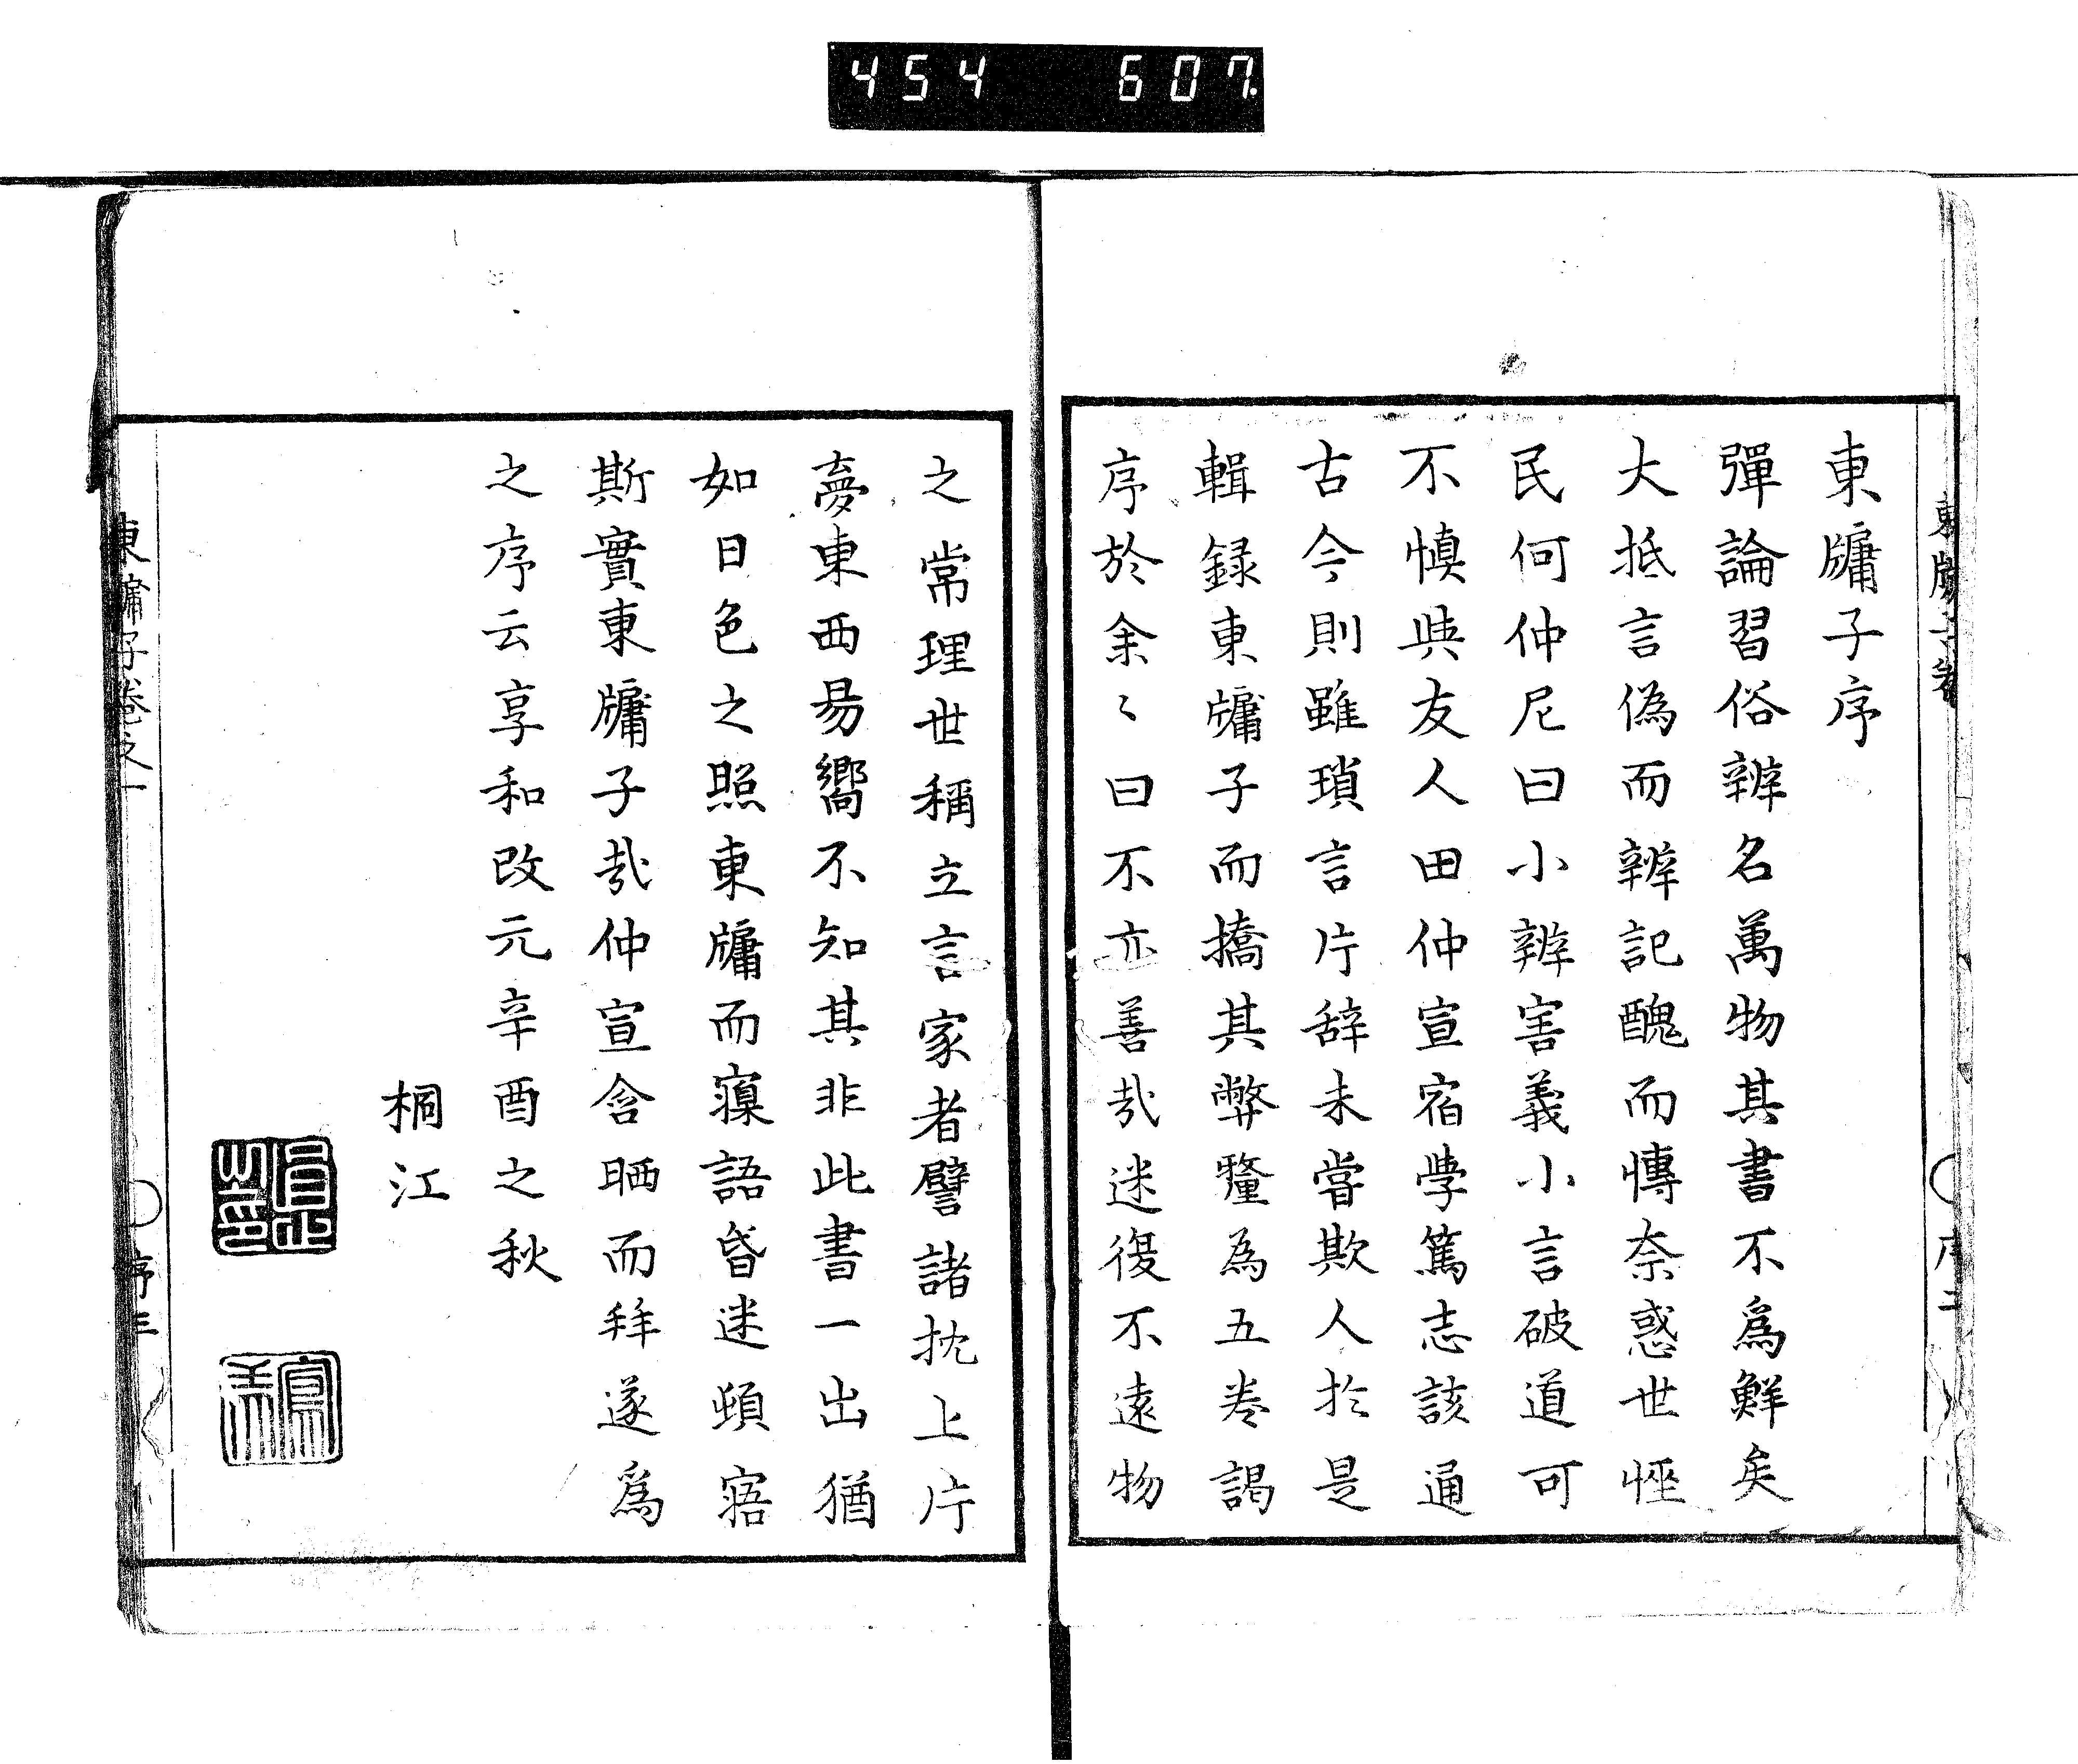 454 607.
東牖子序
彈論習俗辨名萬物其書不爲鮮矣
大抵言偽而辨記醜而慱奈惑世恠
民何仲尼曰小辨害義小言破道可
不慎與友人田仲宣宿學篤志該通
古今則雖瑣言片辞未嘗欺人於是
輯録東牖子而撟其弊釐為五卷謁
序於余〻曰不亦善哉迷復不遠物
之常理世稱立言家者譬諸抌上片
夣東西易嚮不知其非此書一出猶
如日色之照東牖而寱語昏迷頓寤
斯實東牖子哉仲宣含晒而拜遂爲
之序云享和改元辛酉之秋
桐江
東牖子卷之一
序三
序二